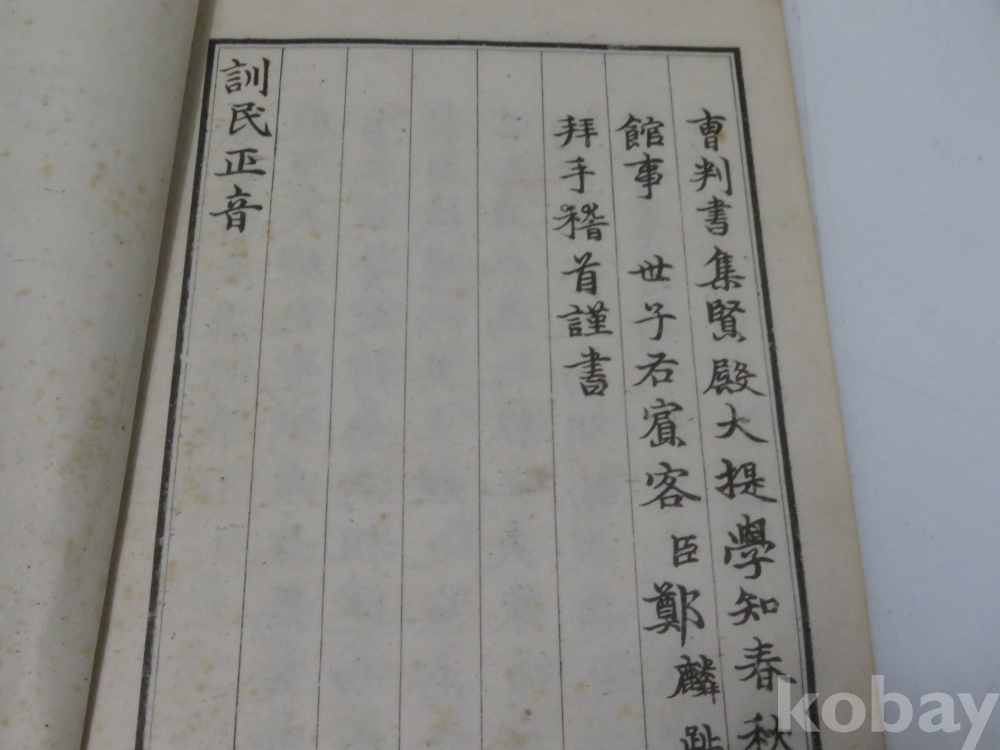 曺判書集賢殿大提學知春秋
館事 世子右賓客臣鄭麟趾
拜手稽首謹書
訓民正音
kobay